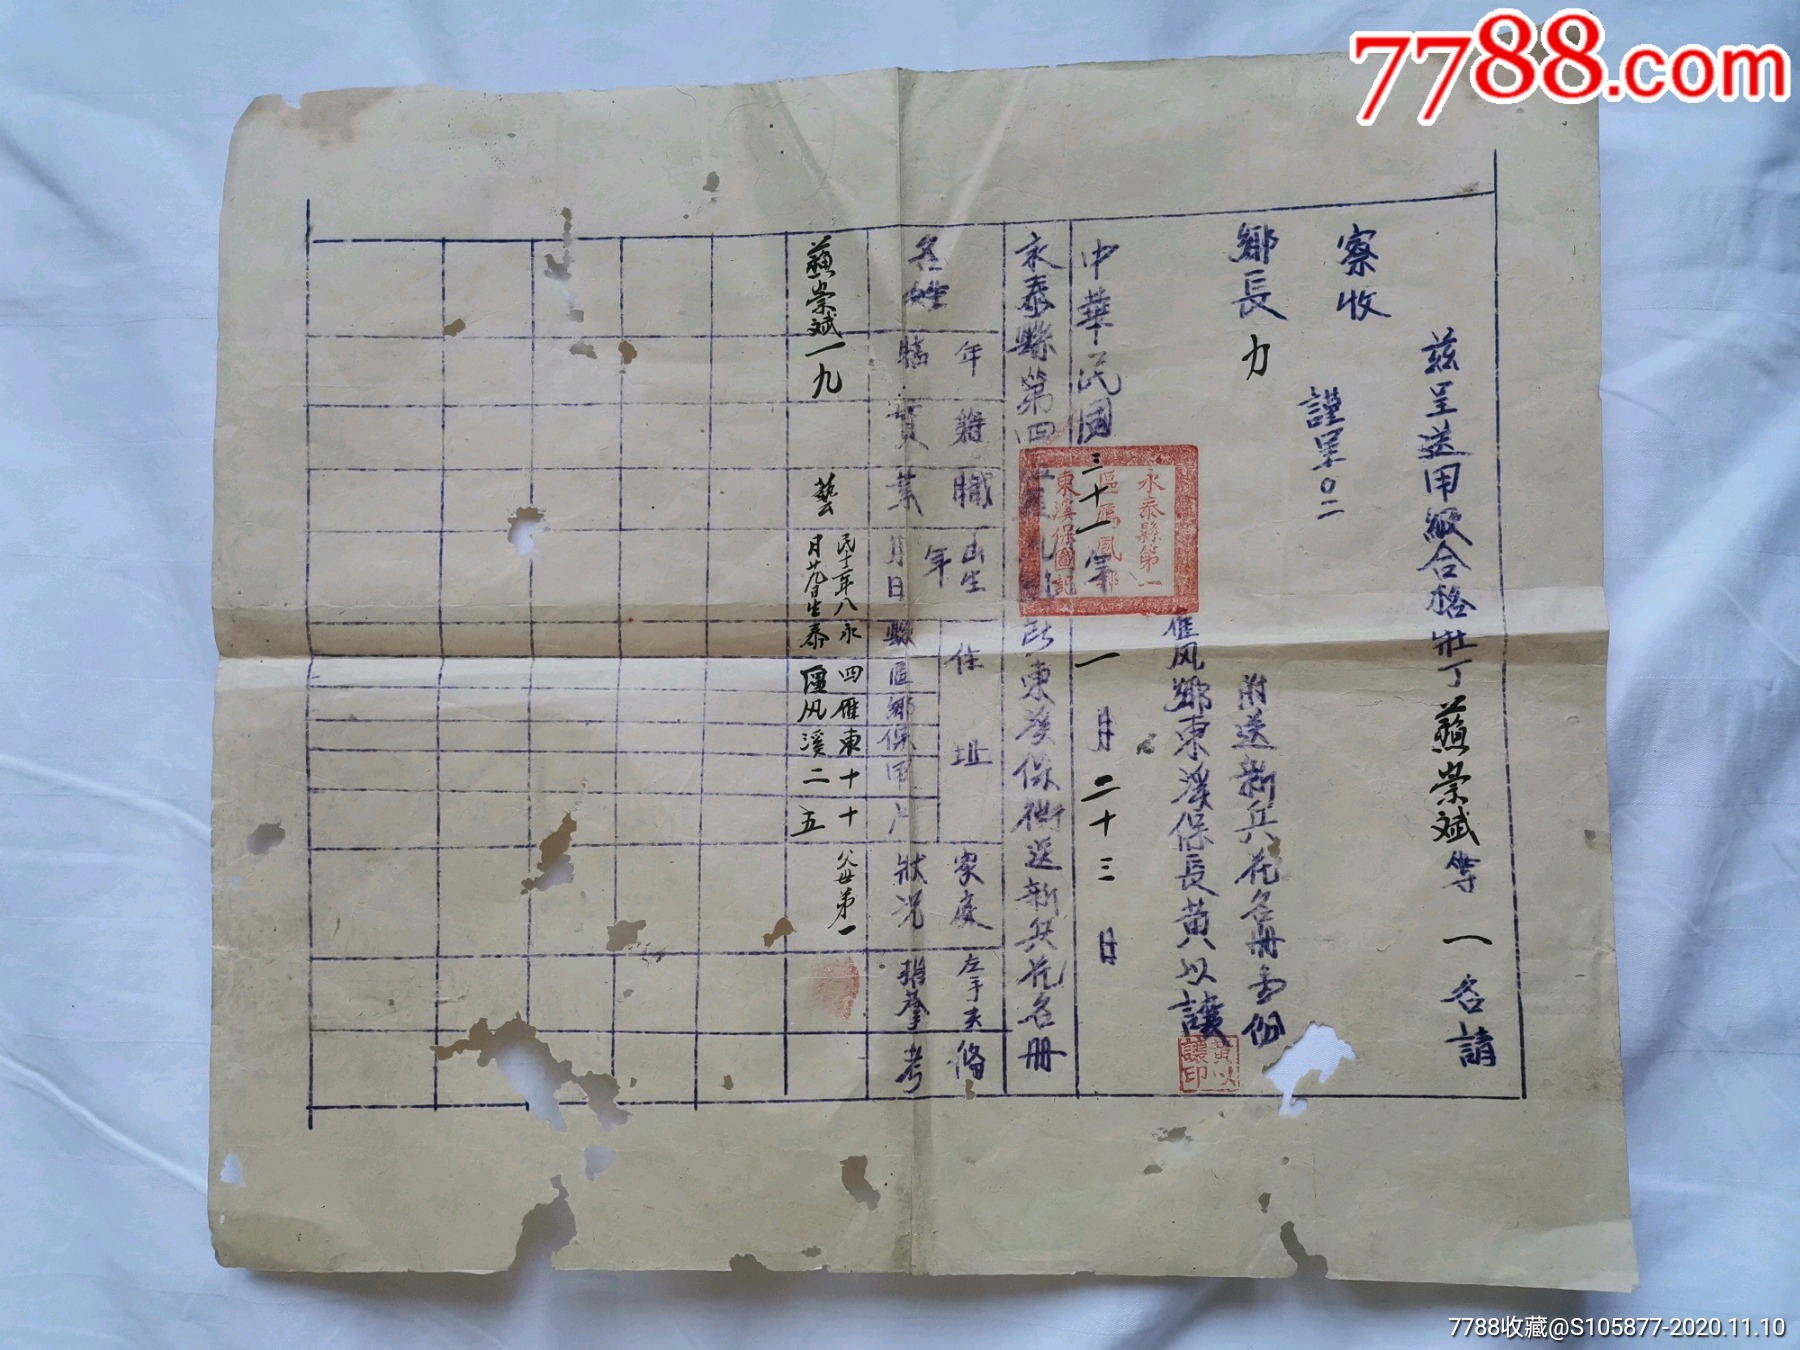 7788.com
兹呈送甲級合格壯丁蘇崇斌等一名請
察收
謹呈〇二
鄉長力
附送新兵花名冊壹份
雁风鄉東溪保長黄以讓
黄以讓印
中華民國三十一年一月二十三日
永泰縣第一區雁鳳鄉東溪保圖記
永泰縣第四區雁風鄉東溪保衝送新兵花名冊
姓名
年齡
籍貫
職業
出生年月日
住址
縣區鄉保甲户
家庭狀况
左手夹指拳
俻考
蘇崇斌
一九
藝
民十二年八月廿九日生
永泰
四區
雁风
東溪
十二
十五
父母弟一
7788收藏@S105877-2020.11.10